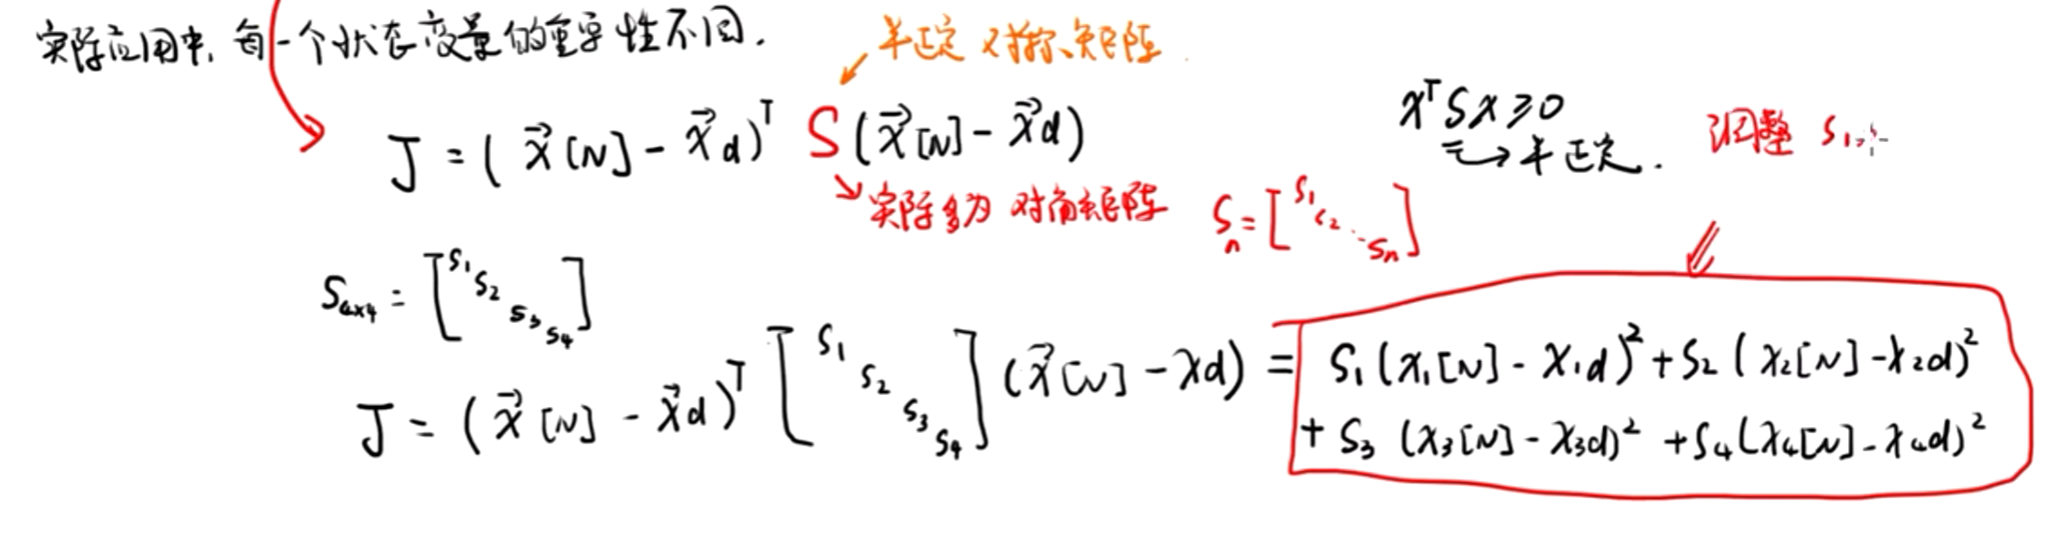 实际应用中, 每一个状态变量的重要性不同.
半正定 对称矩阵
J = ( x⃗[N] - x⃗d )ᵀ S ( x⃗[N] - x⃗d )
xᵀSx ≥ 0
→ 半正定.
调整 S₁,
→ 实际多为 对角矩阵
Sn = [ S₁ S₂ ⋱ Sn ]
S₄ₓ₄ = [ S₁ S₂ S₃ S₄ ]
J = ( x⃗[N] - x⃗d )ᵀ [ S₁ S₂ S₃ S₄ ] ( x⃗[N] - xd ) = S₁(x₁[N] - x₁d)² + S₂(x₂[N] - x₂d)²
+ S₃(x₃[N] - x₃d)² + S₄(x₄[N] - x₄d)²